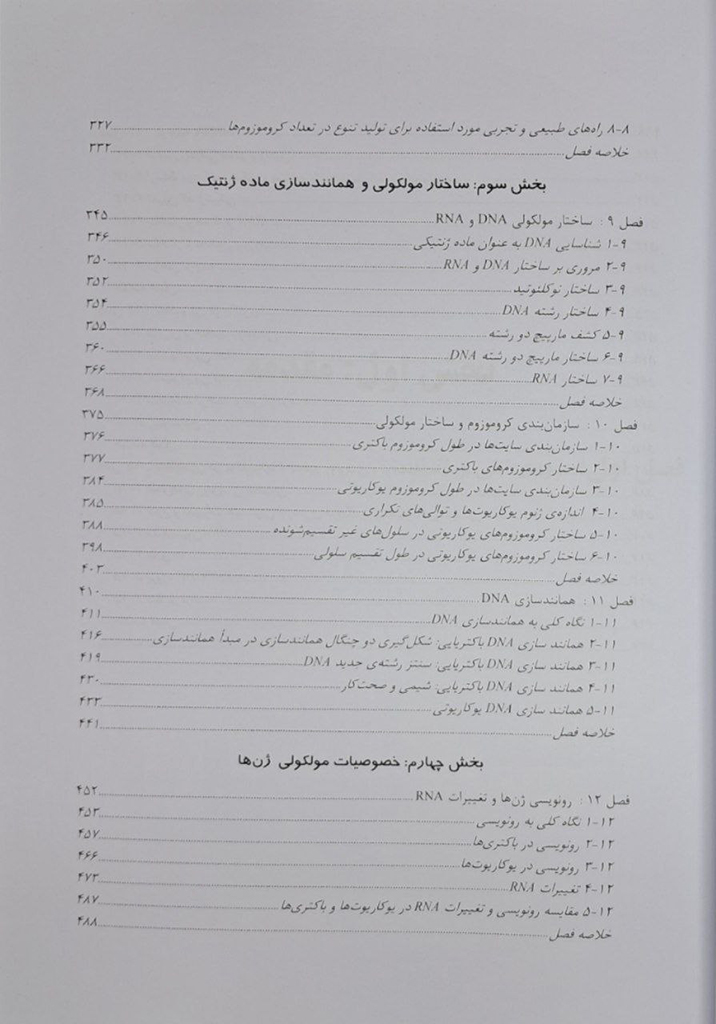 ۸-۸ راه‌های طبیعی و تجربی مورد استفاده برای تولید تنوع در تعداد کروموزوم‌ها ..... ۳۲۷
خلاصه فصل ..... ۳۳۲
بخش سوم: ساختار مولکولی و همانندسازی ماده ژنتیک
فصل ۹ : ساختار مولکولی DNA و RNA ..... ۳۴۵
۹-۱ شناسایی DNA به عنوان ماده ژنتیکی ..... ۳۴۶
۹-۲ مروری بر ساختار DNA و RNA ..... ۳۵۰
۹-۳ ساختار نوکلئوتید ..... ۳۵۲
۹-۴ ساختار رشته DNA ..... ۳۵۴
۹-۵ کشف مارپیچ دو رشته ..... ۳۵۵
۹-۶ ساختار مارپیچ دو رشته DNA ..... ۳۶۰
۹-۷ ساختار RNA ..... ۳۶۶
خلاصه فصل ..... ۳۶۸
فصل ۱۰ : سازمان‌بندی کروموزوم و ساختار مولکولی ..... ۳۷۵
۱۰-۱ سازمان‌بندی سایت‌ها در طول کروموزوم باکتری ..... ۳۷۶
۱۰-۲ ساختار کروموزوم‌های باکتری ..... ۳۷۷
۱۰-۳ سازمان‌بندی سایت‌ها در طول کروموزوم یوکاریوتی ..... ۳۸۴
۱۰-۴ اندازه‌ی ژنوم یوکاریوت‌ها و توالی‌های تکراری ..... ۳۸۵
۱۰-۵ ساختار کروموزوم‌های یوکاریوتی در سلول‌های غیر تقسیم‌شونده ..... ۳۸۸
۱۰-۶ ساختار کروموزوم‌های یوکاریوتی در طول تقسیم سلولی ..... ۳۹۸
خلاصه فصل ..... ۴۰۳
فصل ۱۱ : همانندسازی DNA ..... ۴۱۰
۱۱-۱ نگاه کلی به همانندسازی DNA ..... ۴۱۱
۱۱-۲ همانند سازی DNA باکتریایی: شکل‌گیری دو چنگال همانندسازی در مبدأ همانندسازی ..... ۴۱۶
۱۱-۳ همانند سازی DNA باکتریایی: سنتز رشته‌ی جدید DNA ..... ۴۱۹
۱۱-۴ همانند سازی DNA باکتریایی: شیمی و صحت‌کار ..... ۴۳۰
۱۱-۵ همانند سازی DNA یوکاریوتی ..... ۴۳۳
خلاصه فصل ..... ۴۴۱
بخش چهارم: خصوصیات مولکولی ژن‌ها
فصل ۱۲ : رونویسی ژن‌ها و تغییرات RNA ..... ۴۵۲
۱۲-۱ نگاه کلی به رونویسی ..... ۴۵۳
۱۲-۲ رونویسی در باکتری‌ها ..... ۴۵۷
۱۲-۳ رونویسی در یوکاریوت‌ها ..... ۴۶۶
۱۲-۴ تغییرات RNA ..... ۴۷۳
۱۲-۵ مقایسه رونویسی و تغییرات RNA در یوکاریوت‌ها و باکتری‌ها ..... ۴۸۷
خلاصه فصل ..... ۴۸۸